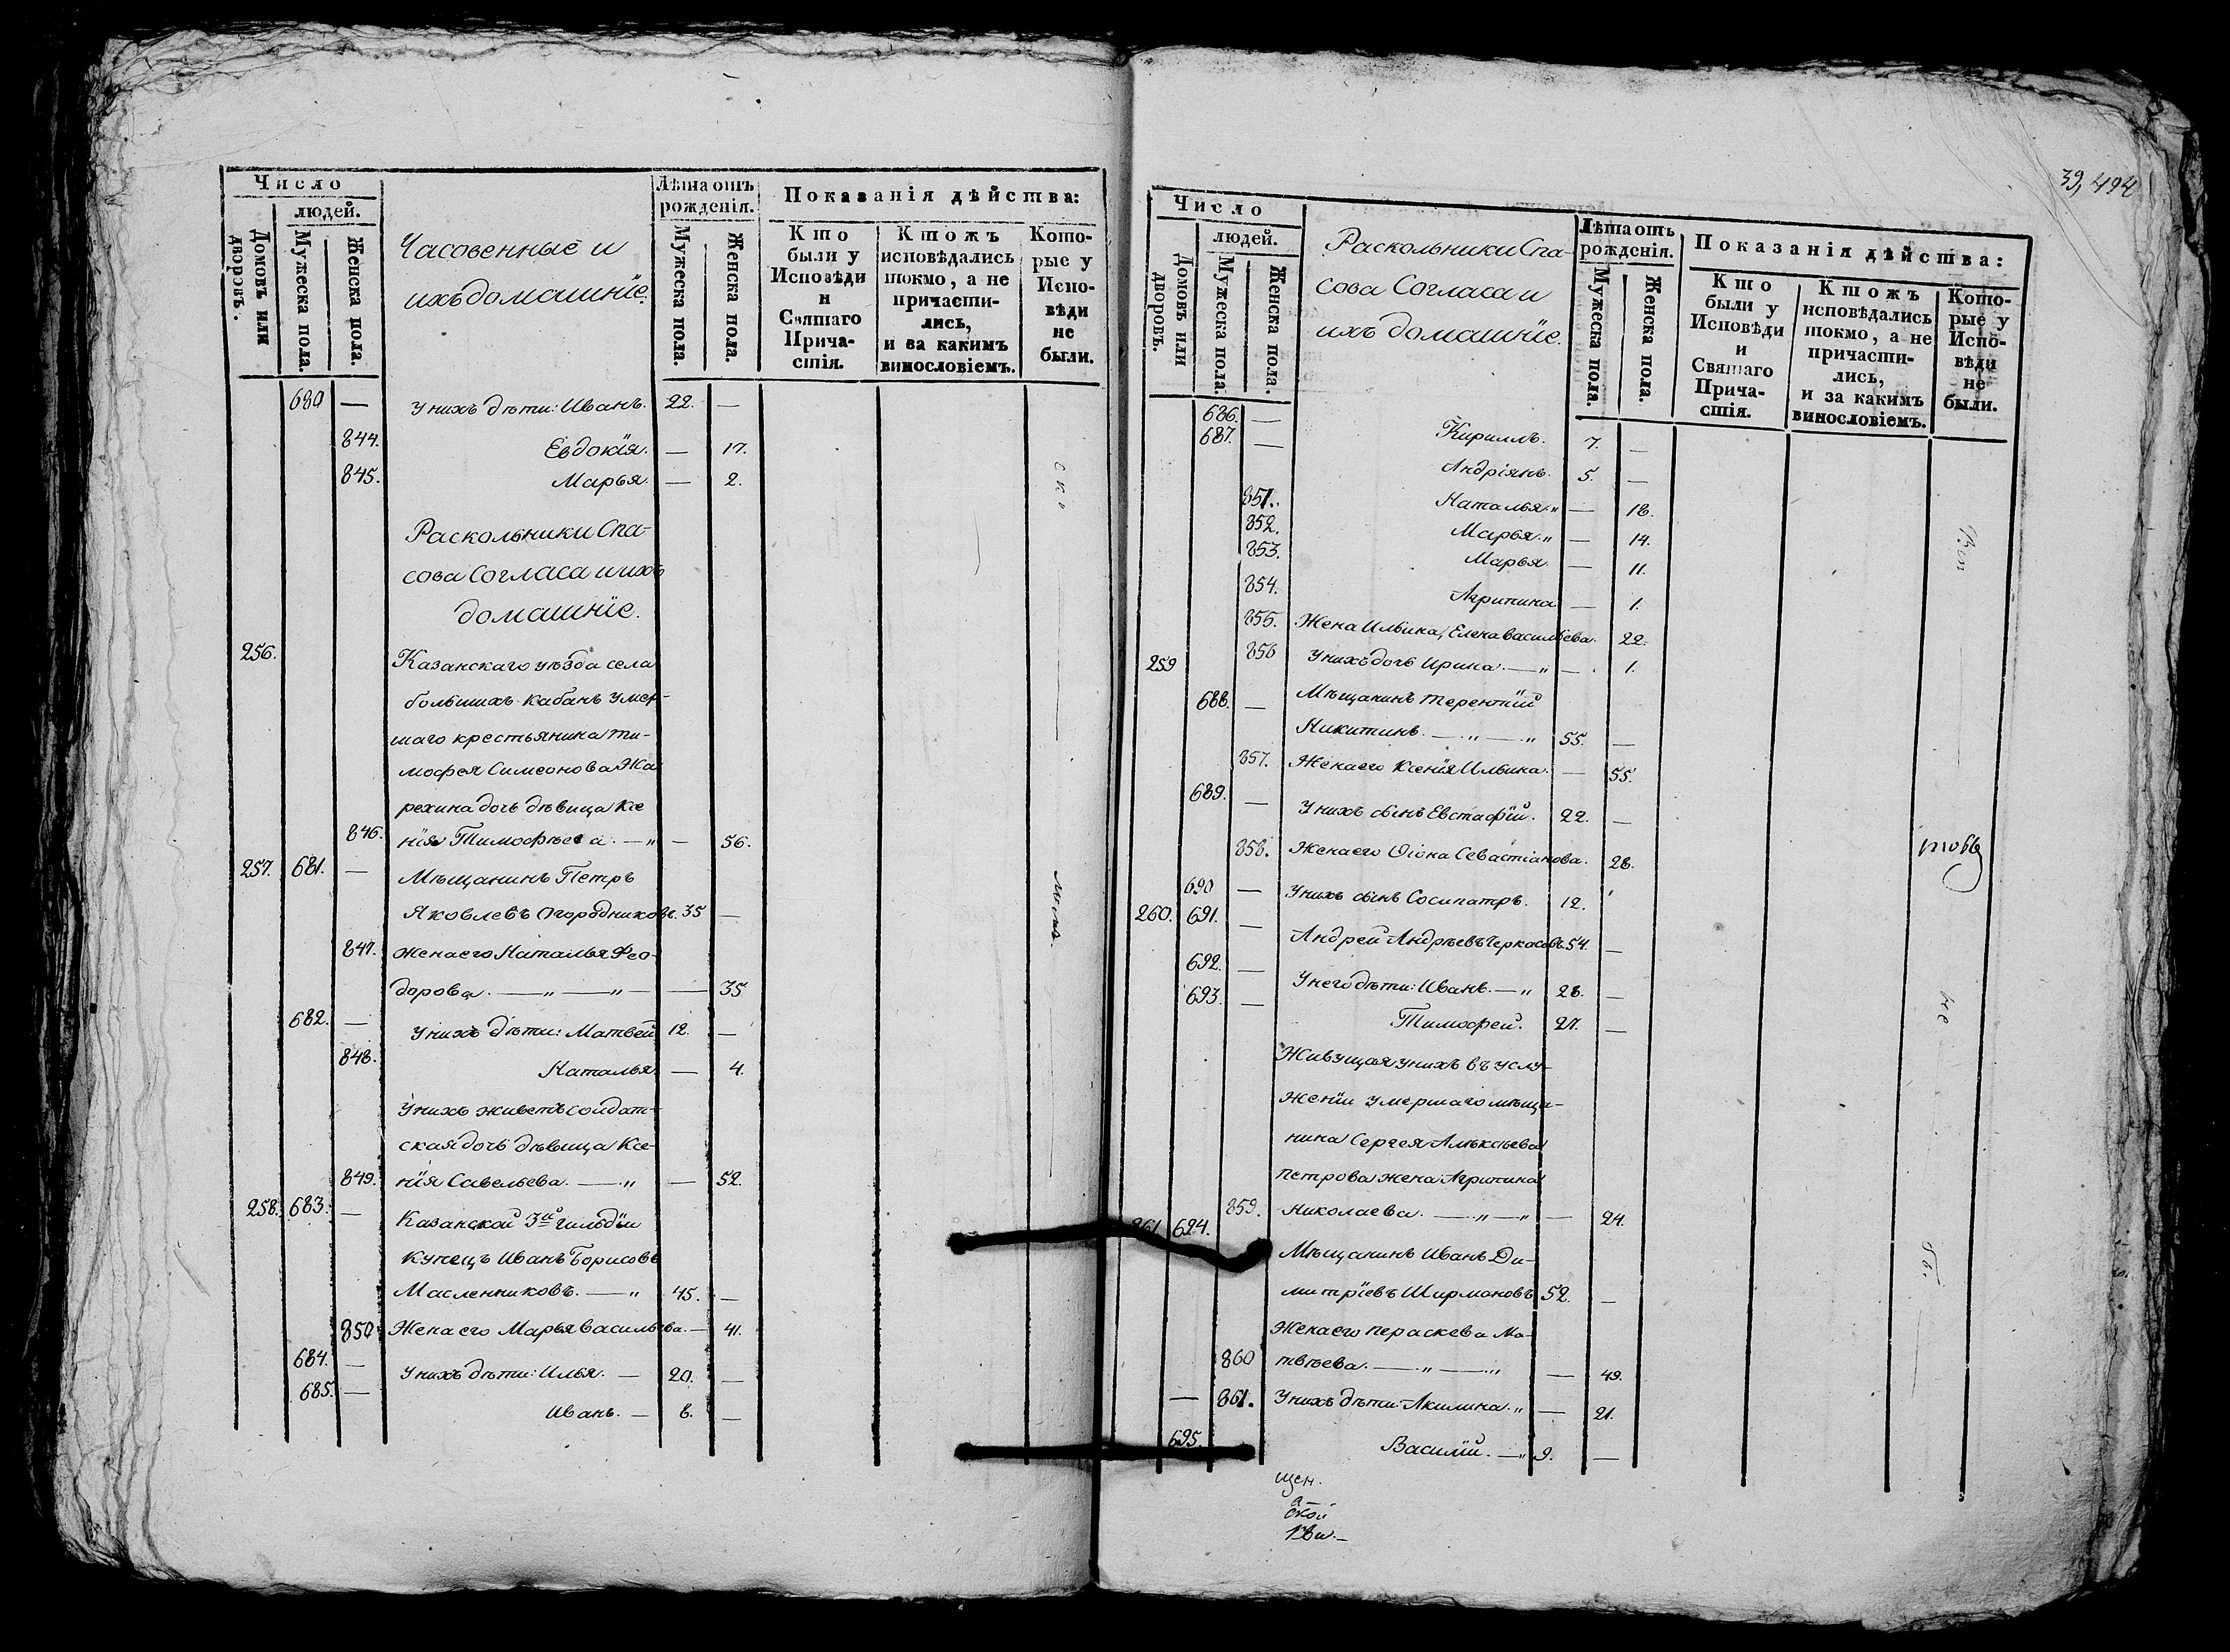 Число
людей.
Домовъ или дворовъ.
Мужеска пола.
Женска пола.
Часовенные и
ихъ домашніе.
Лѣта отъ рожденія.
Мужеска пола.
Женска пола.
Показанія дѣйства:
Кто были у Исповѣди и Святаго Причастія.
Ктожъ исповѣдались токмо, а не причастились, и за какимъ винословіемъ.
Которые у Исповѣди не были.
680 — у нихъ дѣти: Иванъ. 22. —
844. Евдокія. — 17.
845. Марья. — 2.
Раскольники Спа-
сова Согласа и ихъ
домашніе.
256. Казанскаго уѣзда села
большихъ кабанъ умер-
шаго крестьянина Ти-
мофея Симеонова Жа
рехина дочь дѣвица Ксе
846. нія Тимофѣева. — „ — 56.
257. 681. — Мѣщанинъ Петръ
Яковлевъ Огородниковъ. 35 —
847. жена его Наталья Фео-
дорова. — „ — „ — 35
682. — у нихъ дѣти: Матвей 12. —
848. Наталья. — 4.
У нихъ живетъ солдат-
ская дочь дѣвица Ксе-
849. нія Савельева. — „ — 52.
258. 683. — Казанской 3й гильдіи
купецъ Иванъ Борисовъ
Масленниковъ. — „ 45. —
850 Жена его Марья Васильева. — 41.
684. — у нихъ дѣти: Илья. — 20. —
685. — Иванъ. — 8. —
39, 494
Число
людей.
Домовъ или дворовъ.
Мужеска пола.
Женска пола.
Раскольники Спа-
сова Согласа и
ихъ домашніе.
Лѣта отъ рожденія.
Мужеска пола.
Женска пола.
Показанія дѣйства:
Кто были у Исповѣди и Святаго Причастія.
Ктожъ исповѣдались токмо, а не причастились, и за какимъ винословіемъ.
Которые у Исповѣди не были.
686. — Кириллъ. 7. —
687. — Андріянъ. 5. —
851. Наталья. „ — 18.
852. Марья. „ — 14.
853. Марья. — 11.
854. Агрипина — 1.
855. Жена Ильина, Елена Васильева. 22.
856 У нихъ дочь Ирина. — „ — 1.
259 688. — Мѣщанинъ Терентій
Никитинъ. — „ — „ 55. —
857. Жена его Ксенія Ильина. — 55.
689. — У нихъ сынъ Евстафій. 22. —
858. Жена его Ѳіона Севастіанова. 28.
690 — У нихъ сынъ Сосипатръ. 12.
260. 691. — Андрей Андрѣевъ Черкасовъ. 54. —
692. — У него дѣти: Иванъ. — „ 28. —
693. — Тимофей. 27. —
Живущая у нихъ въ услу-
женіи умершаго мѣща-
нина Сергея Алексѣева
Петрова жена Агрипина
859. Николаева. — „ — „ — 24.
261 694. Мѣщанинъ Иванъ Ди-
митріевъ Ширмановъ 52. —
Жена его Параскева Ма-
860 твѣева. — „ — „ — 49.
— 861. У нихъ дѣти: Акилина. „ — 21.
695. Василій. — „ 9. —